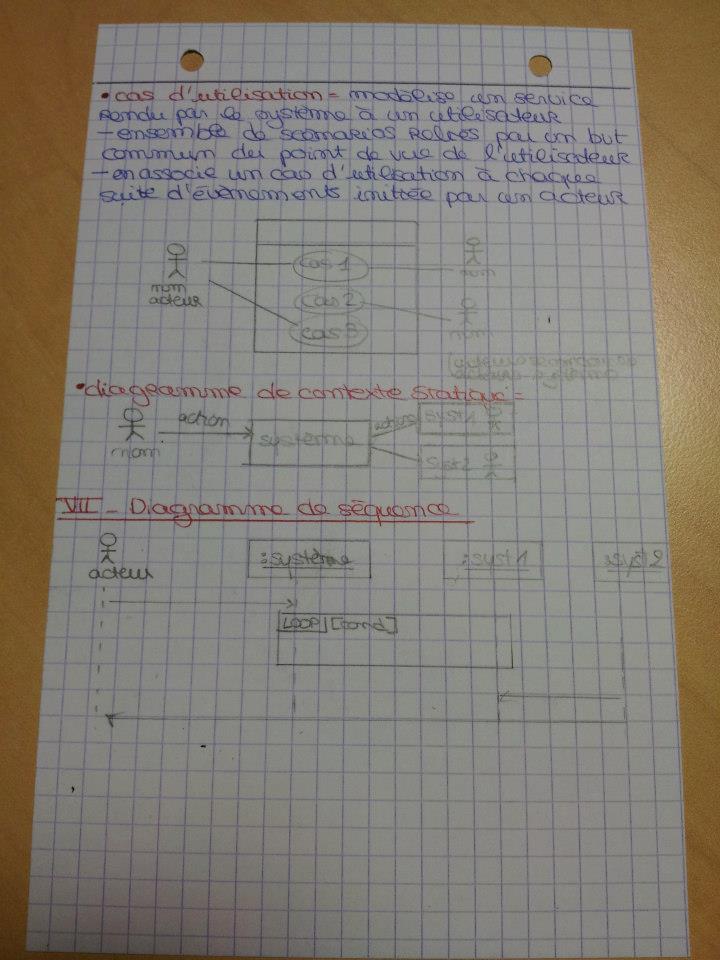 • cas d'utilisation = modélise un service
rendu par le système à un utilisateur
- ensemble de scénarios reliés par un but
commun du point de vue de l'utilisateur
- on associe un cas d'utilisation à chaque
suite d'évènements initiée par un acteur
cas 1
nom
acteur
nom
cas 2
cas 3
nom
• diagramme de contexte statique =
action
système
action
syst1
syst2
nom
VII - Diagramme de séquence
acteur
:système
:syst1
:syst2
LOOP [cond]